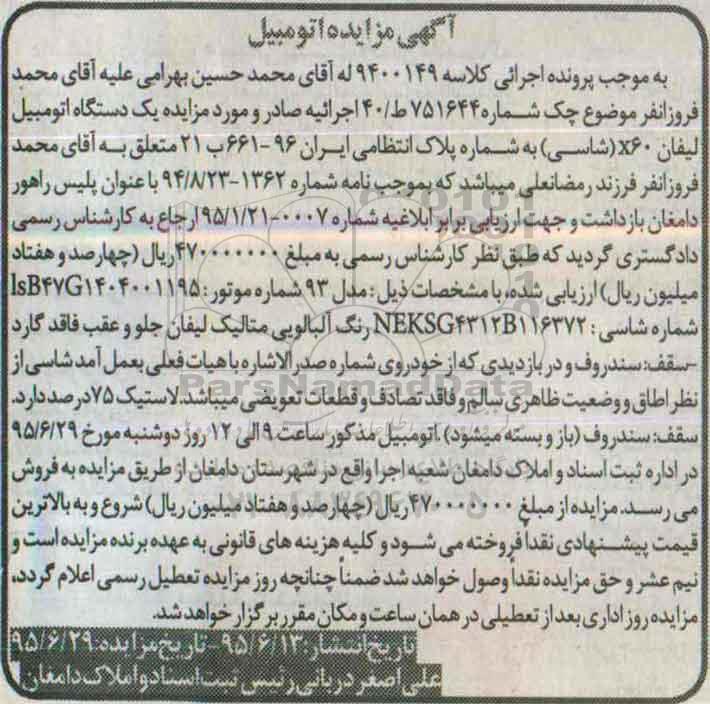 آگهی مزایده اتومبیل
به موجب پرونده اجرائی کلاسه ۹۴۰۰۱۴۹ له آقای محمد حسین بهرامی علیه آقای محمد
فروزانفر موضوع چک شماره ۷۵۱۶۴۴ ط/۴۰ اجرائیه صادر و مورد مزایده یک دستگاه اتومبیل
لیفان x۶۰ (شاسی) به شماره پلاک انتظامی ایران ۹۶ -۶۶۱ ب ۲۱ متعلق به آقای محمد
فروزانفر فرزند رمضانعلی میباشد که بموجب نامه شماره ۱۳۶۲-۹۴/۸/۲۳ با عنوان پلیس راهور
دامغان بازداشت و جهت ارزیابی برابر ابلاغیه شماره ۰۰۰۷-۹۵/۱/۲۱ ارجاع به کارشناس رسمی
دادگستری گردید که طبق نظر کارشناس رسمی به مبلغ ۴۷۰۰۰۰۰۰۰ ریال (چهارصد و هفتاد
میلیون ریال) ارزیابی شده، با مشخصات ذیل: مدل ۹۳ شماره موتور: lsB۴۷G۱۴۰۴۰۰۱۱۹۵
شماره شاسی: NEKSG۴۳۱۲B۱۱۶۳۷۲ رنگ آلبالویی متالیک لیفان جلو و عقب فاقد گارد
-سقف: سندروف و در بازدیدی که از خودروی شماره صدرالاشاره با هیات فعلی بعمل آمد شاسی از
نظر اطاق و وضعیت ظاهری سالم و فاقد تصادف و قطعات تعویضی میباشد. لاستیک ۷۵ درصد دارد.
سقف: سندروف (باز و بسته میشود). اتومبیل مذکور ساعت ۹ الی ۱۲ روز دوشنبه مورخ ۹۵/۶/۲۹
در اداره ثبت اسناد و املاک دامغان شعبه اجرا واقع در شهرستان دامغان از طریق مزایده به فروش
می رسد. مزایده از مبلغ ۴۷۰۰۰۰۰۰۰ ریال (چهارصد و هفتاد میلیون ریال) شروع و به بالاترین
قیمت پیشنهادی نقداً فروخته می شود و کلیه هزینه های قانونی به عهده برنده مزایده است و
نیم عشر و حق مزایده نقداً وصول خواهد شد ضمناً چنانچه روز مزایده تعطیل رسمی اعلام گردد،
مزایده روز اداری بعد از تعطیلی در همان ساعت و مکان مقرر برگزار خواهد شد.
تاریخ انتشار: ۹۵/۶/۱۳ - تاریخ مزایده: ۹۵/۶/۲۹
علی اصغر دربانی رئیس ثبت اسناد و املاک دامغان
ParsNamadData